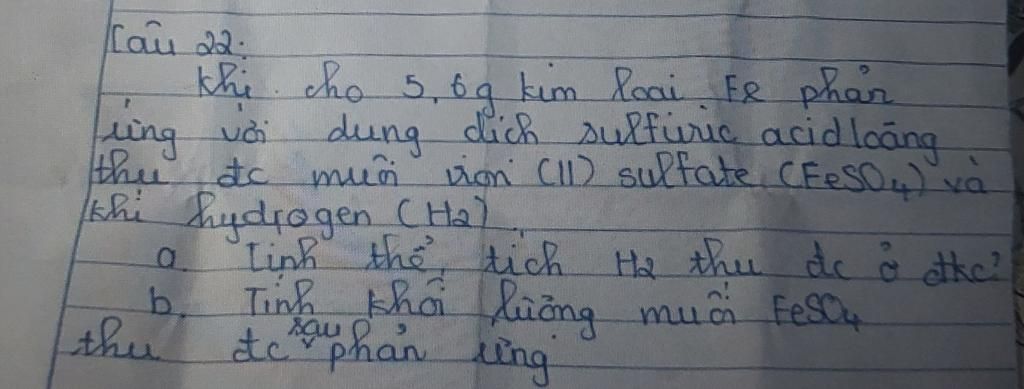 Câu 22:
Khi cho 5,6g kim loại Fe phản
ứng với dung dịch sulfuric acid loãng
thu đc muối iron (II) sulfate (FeSO4) và
khí hydrogen (H2)
a. Tính thể tích H2 thu đc ở đkc?
b. Tính khối lượng muối FeSO4
thu đc sau phản ứng